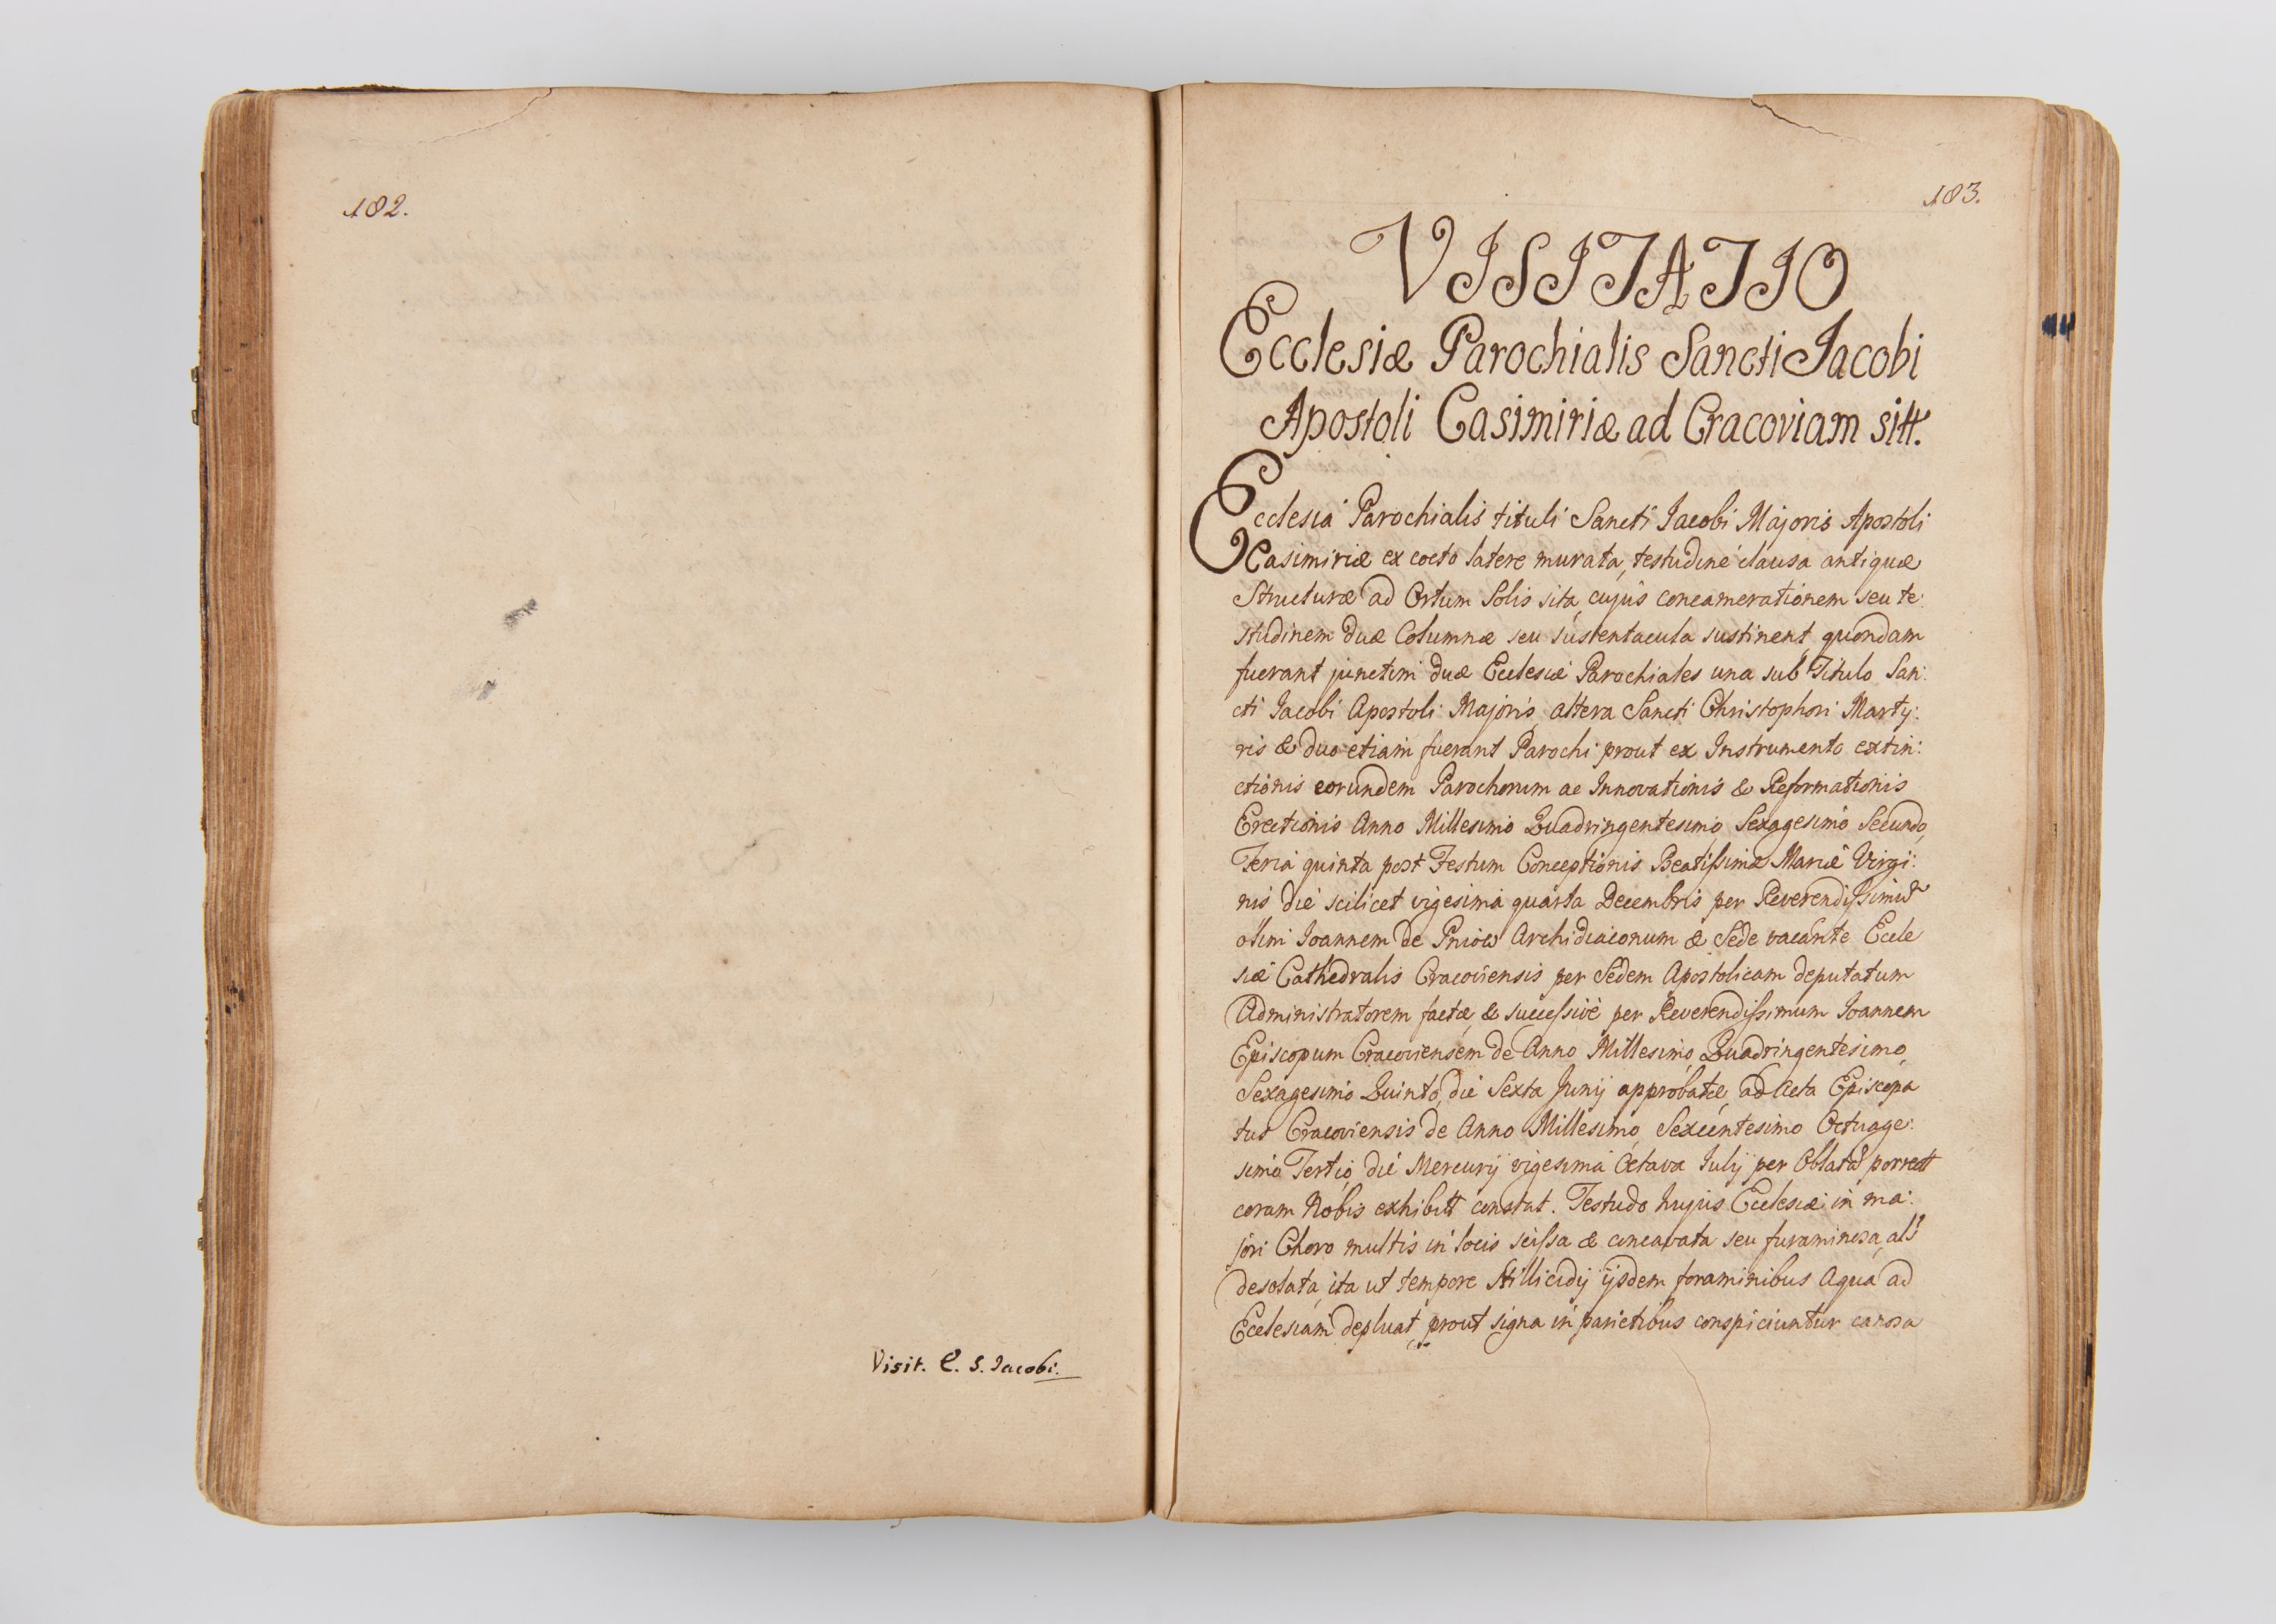 182.
Visit. E. S. Jacobi.
183.
VISITATIO
Ecclesiæ Parochialis Sancti Jacobi
Apostoli Casimiriæ ad Cracoviam sitt.
Ecclesia Parochialis tituli Sancti Jacobi Majoris Apostoli
Casimiriæ ex cocto latere murata, testudine clausa antiquæ
Structuræ ad Ortum Solis sita, cujus concamerationem seu te:
studinem duæ Columnæ seu sustentacula sustinent, quondam
fuerant junctim duæ Ecclesiæ Parochiales una sub Titulo San:
cti Jacobi Apostoli Majoris, altera Sancti Christophori Marty:
ris & duo etiam fuerant Parochi prout ex Instrumento extin:
ctionis eorundem Parochorum ac Innovationis & Reformationis
Erectionis Anno Millesimo Quadringentesimo Sexagesimo Secundo,
Feria quinta post Festum Conceptionis Beatissimæ Mariæ Virgi:
nis die scilicet vigesima quarta Decembris per Reverendissimũ
olim Joannem de Pniow Archidiaconum & Sede vacante Eccle
siæ Cathedralis Cracoviensis per Sedem Apostolicam deputatum
Administratorem factæ, & successive per Reverendissimum Joannem
Episcopum Cracoviensem de Anno Millesimo Quadringentesimo,
Sexagesimo Quinto, die Sexta Junij approbatæ, ad Acta Episcopa
tus Cracoviensis de Anno Millesimo Sexcentesimo Octuage:
simo Tertio, die Mercurij vigesima Octava Julij per Oblatã porrectt
coram Nobis exhibitt constat. Testudo hujus Ecclesiæ in ma:
jori Choro multis in locis scissa & concavata seu furaminosa, als
desolata, ita ut tempore Stillicidij ijsdem foraminibus Aqua ad
Ecclesiam depluat, prout signa in parietibus conspiciuntur canosa